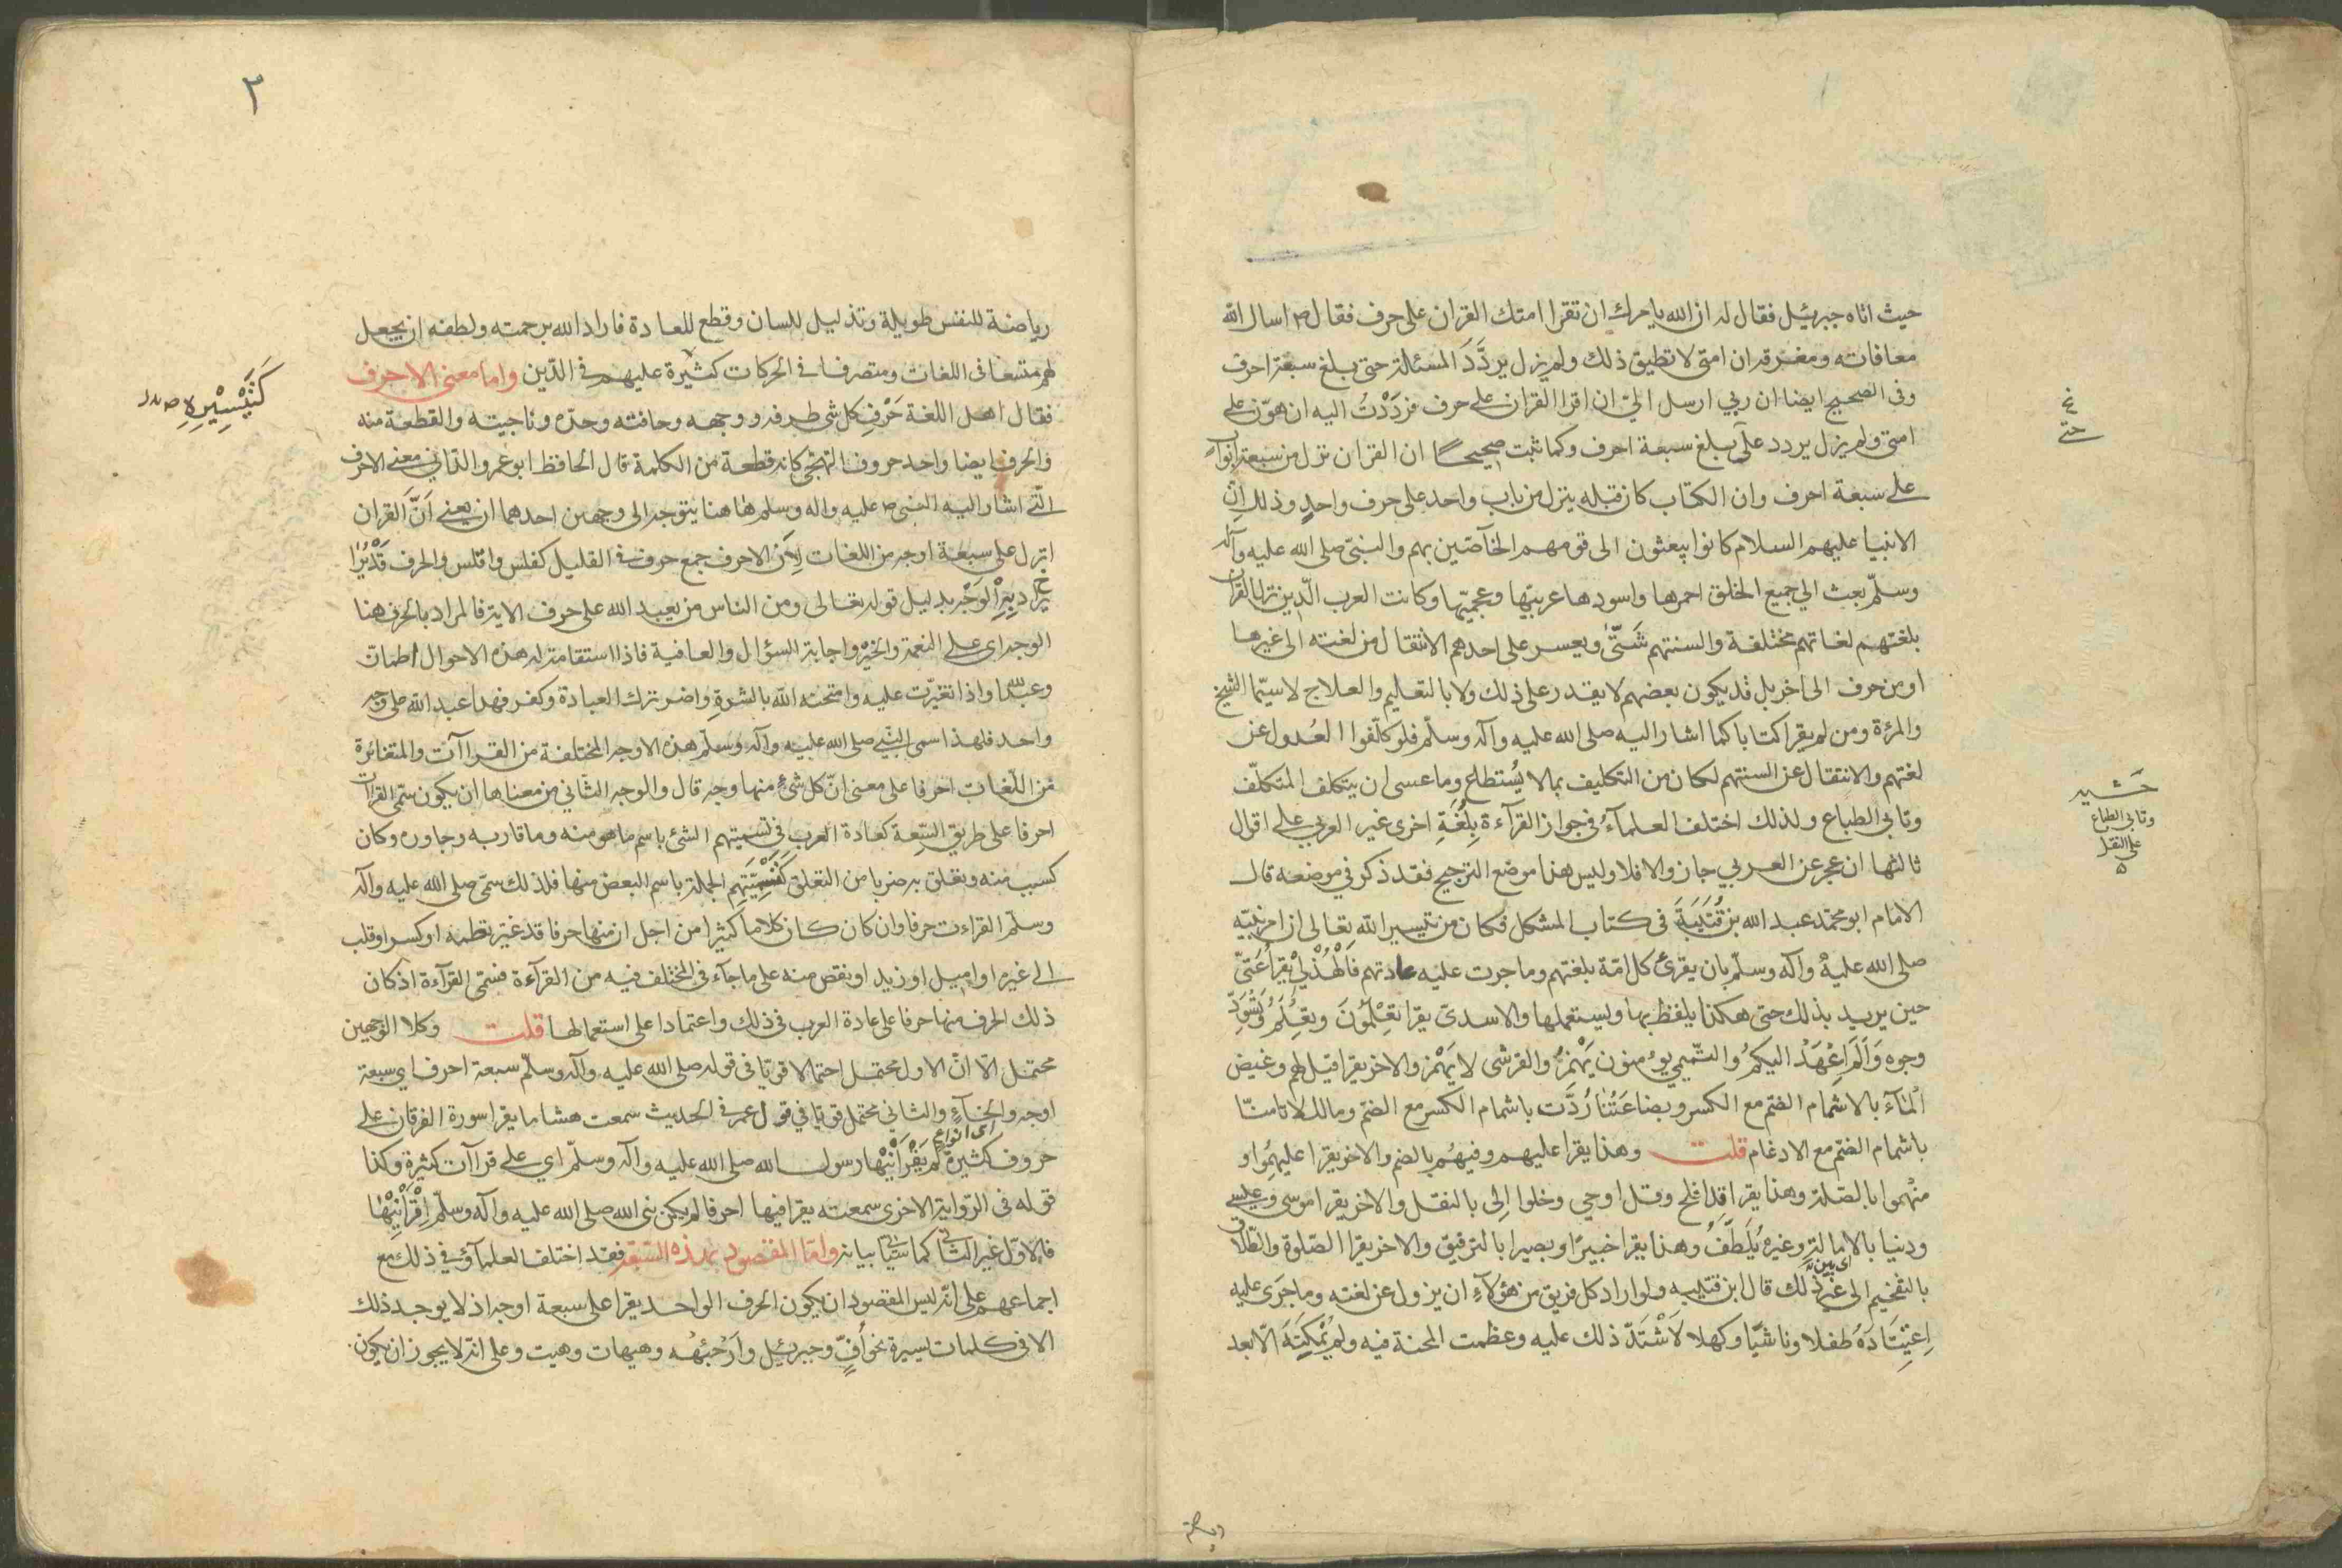 حيث اتاه جبرئيل فقال له ان الله يامرك ان تقرا امتك القران على حرف فقال ص اسال الله
معافاته ومغفرته ان امتى لا تطيق ذلك ولم يزل يردَّدَ المسئلة حتى بلغ سبعة احرف
وفى الصحيح ايضا ان ربي ارسل الىّ ان اقرا القران على حرف فردَدْتُ اليه ان هوّن على
امتى ولم يزل يردد على بلغ سبعة احرف وكما ثبت صحيحا ان القران نزل من سبعة ابواب
على سبعة احرف وان الكتاب كان قبله ينزل من باب واحد على حرف واحدٍ وذلك انّ
الانبيا عليهم السلام كانوا يبعثون الى قومهم الخآصّين بهم والنبىّ صلى الله عليه وآله
وسلّم بعث الي جميع الخلق احمرها واسودها عربيّها وعجميّها وكانت العرب الّذين نزل القران
بلغتهم لغاتهم مختلفة والسنتهم شَتّىٰ ويعسر على احدهم الانتقال من لغته الى غيرها
او من حرف الى اخر بل قد يكون بعضهم لا يقدر على ذلك ولا بالتعليم والعلاج لاسيّما الشيخ
والمرٔة ومن لم يقرا كتابا كما اشار اليه صلى الله عليه وآله وسلّم فلو كلّفوا العُدول عن
لغتهم والانتقال عن السنتهم لكان من التكليف بما لا يُستطاع وما عسى ان يتكلف المتكلّف
وتابى الطباع ولذلك اختلف العلمآءُ فى جواز القرآءة بِلُغَةٍ اخرى غير العربي على اقوال
ثالثها ان عجز عن العربي جاز والا فلا وليس هذا موضع الترجيح فقد ذكر في موضعه قال
الامام ابو محمّد عبد الله بن قُتَيْبَةَ فى كتاب المشكل فكان من تيسير الله تعالى ان امر نبيّه
صلى الله عليه وآله وسلّم بان يقرئ كل امّة بلغتهم وما جرت عليه عادتهم فَالْهُذْلِىّ يَقْرأ عَتىّ
حين يريد بذلك حتى هكذا يلفظ بها ويستعملها والاسدىّ يقرا تِعْلَمُونَ وتِعْلَمُ وتِسْوَدّ
وجوه وَاَلَم اِعْهَدْ اليكمُ والتّميمي يؤمنون يَهْمزُ والقرشى لا يَهْمز والاخر يقرا قيل لهم وغيض
الْمَآءُ بالاشمام الضّم مع الكسر وبضاعَتُنا رُدَّت باشمام الكسر مع الضمّ ومالك لا تامنّا
باشمام الضّم مع الادغام قلت وهذا يقرا عليهم وفيهُم بالضم والاخر يقرا عليهمُوا و
منهُموا بالصّلة وهذا يقرا قد افلح وقل اوحي وخلوا اِلى بالنقل والاخر يقرا موسى وعيسى
ودنيا بالامالة وغيره يُلَطِّفُ وهذا يقرا خبيرًا وبصيرا بالترقيق والاخر يقرا الصّلوة والطّلاق
بالتفخيم الى غير ذلك قال ابن قتيبه ولو اراد كل فريق من هؤلآءِ ان يزول عن لغته وما جَرَى عليه
اِعتِيَادَهُ طفلا وناشيّا وكهلا لَاشْتَدّ ذلك عليه وعظمت المحنة فيه ولم يُمْكِنَهُ الّا بعد
نخ
حتى
وتابى الطباع
على النقل
٣
رياضة للنفس طويلة وتذليل للسان وقطع للعادة فاراد الله برحمته ولطفه ان يجعل
لهم متسعا فى اللغات ومتصرفا فى الحركات كثيرة عليهم فى الدّين واما معنى الاحرف
فقال اهل اللغة حَرْفِ كل شى طرفه ووجهه وحافته وحدّه وناحيته والقطعة منه
والحرف ايضا واحد حروف التهجّى كانه قطعة من الكلمة قال الحافظ ابو عمرو الدّاني معنى الاحرف
الّتى اشار اليه النبى ص عليه واله وسلم هاهنا يتوجه الى وجهين احدهما ان يعنى اَنّ القران
انزل على سبعة اوجه من اللغات لِاَن الاحرف جمع حرف فى القليل كفلس وافلس والحرف قَدْ يُرَا
دُ بِهِ الْوَجْه بدليل قوله تعالى ومن الناس من يعبد الله على حرف الاية فالمراد بالحرف هنا
الوجه اى على النعمة والخير واجابة السؤال والعافية فاذا استقامت له هذه الاحوال اطمانّ
وعبد الله واذا تغيّرت عليه وامتحنه الله بالشدة واضر ترك العبادة وكفر فهذا عبد الله على وجه
واحد فلهذا سمى النّبى صلى الله عليه وآله وسلّم هذه الاوجه المختلفة من القراآت والمتغائرة
من اللّغات احرفا على معنى انّ كل شئ منها وجه قال والوجه الثّاني من معناها ان يكون سمّى القراآت
احرفا على طريق السّعة كعادة العرب فى تسميتهم الشئ باسم ما هو منه وما قاربه وجاوره وكان
كسبب منه وتعلق به ضربا من التعلق كَتَسْمِيَتِهِم الجملة باسم البعض منها فلذلك سمّى صلى الله عليه وآله
وسلّم القراءت حرفا وان كان كلاما كثيرا من اجل ان منها حرفا قد غيّر نظمه او كسر او قلب
الى غيره او اميل او زيد او نقص منه على ما جآء فى المختلف فيه من القرآءة فسمّى القرآءة اذ كان
ذلك الحرف منها حرفا على عادة العرب فى ذلك واعتمادا على استعمالها قلت وكلا الوجهين
محتمل الّا انّ الاول محتمل احتمالا قويّا فى قوله صلى الله عليه وآله وسلّم سبعة احرف اي سبعة
اوجه وانحآءٍ والثانى محتمل قويّا في قول عمر فى الحديث سمعت هشاما يقرا سورة الفرقان على
اى انواع
حروف كثيرة لم يَقْرَأنيْها رسول الله صلى الله عليه وآله وسلّم اي على قراآت كثيرة وكذا
قوله فى الرّواية الاخرى سمعته يقرا فيها احرفا لم يكن نبى الله صلى الله عليه وآله وسلّم اِقْرَأنِيْهٰا
فالاوّل غير الثّانى كما سَيَأتى بيانه وامّا المقصود بهذه السّبعة فقد اختلف العلمآؤ فى ذلك مع
اجماعهم على انّه ليس المقصود ان يكون الحرف الواحد يقرا على سبعة اوجه اذ لا يوجد ذلك
الا فى كلمات يسيرة نحو اُفّ وجبرئيل واَرْجِئْهُ وهيهات وهيت وعلى انّه لا يجوز ان يكون